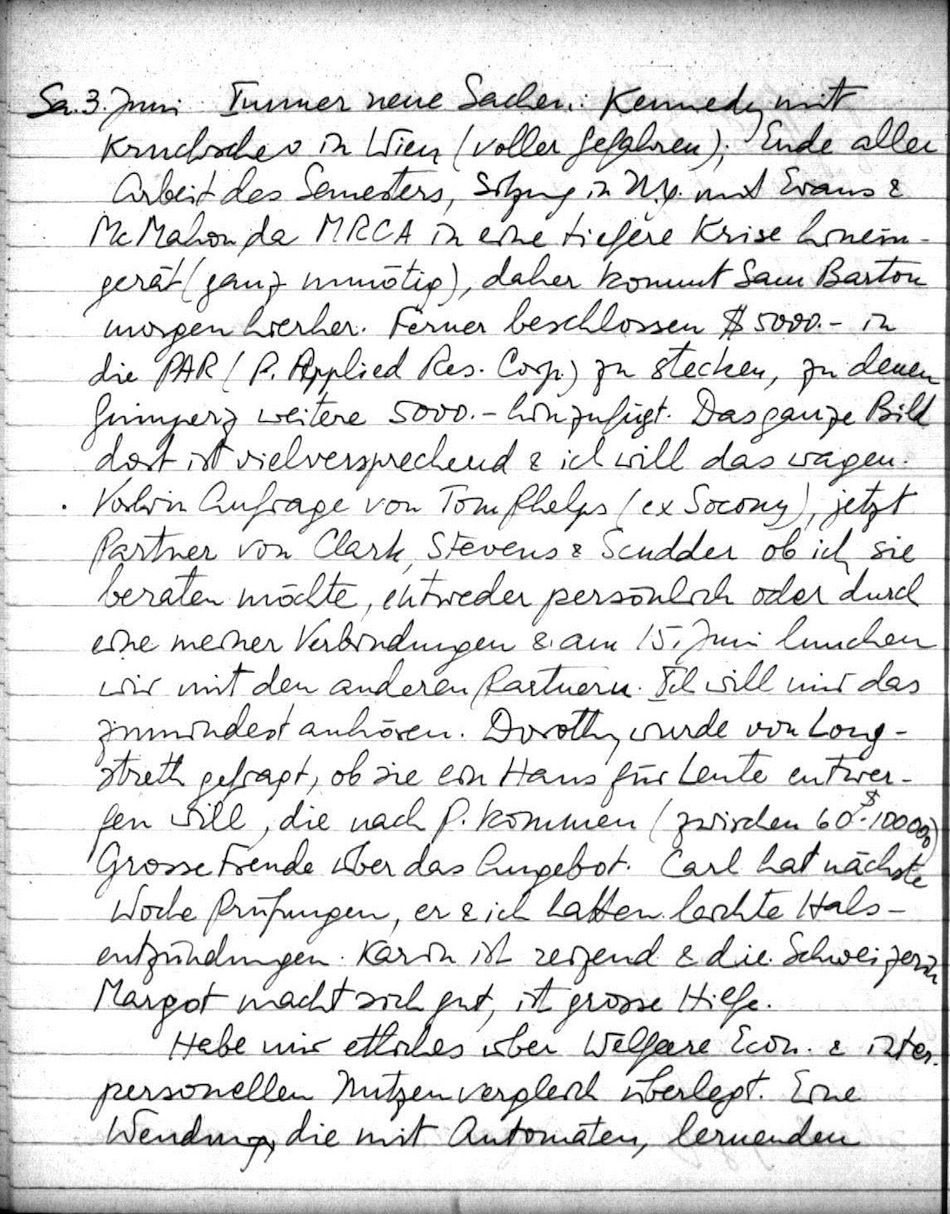 Sa. 3. Juni Immer neue Sachen: Kennedy mit
Kruchschev in Wien (voller Gefahren); Ende aller
Arbeit des Semesters, Sitzung in N.Y. mit Evans &
McMahon da MRCA in eine tiefere Krise hinein-
gerät (ganz unnötig), daher kommt Sam Barton
morgen hierher. Ferner beschlossen $ 5000.- in
die PAR (P. Applied Res. Corp.) zu stecken, zu denen
weitere 5000.- hinzufügt. Das ganze Bild
dort ist vielversprechend & ich will das wagen.
Vorhin Anfrage von Tom Phelps (ex Socony), jetzt
Partner von Clark, Stevens & Scudder ob ich sie
beraten möchte, entweder persönlich oder durch
eine meiner Verbindungen & am 15. Juni lunchen
wir mit den anderen Partnern. Ich will mir das
zumindest anhören. Dorothy wurde von Long-
streth gefragt, ob sie ein Haus für Leute entwer-
fen will, die nach P. kommen (zwischen 60-$100000)
Grosse Freude über das Angebot. Carl hat nächste
Woche Prüfungen, er & ich hatten leichte Hals-
entzündungen. Karin ist reizend & die Schweizerin
Margot macht sich gut, ist grosse Hilfe.
Habe mir etliches über Welfare Econ. & inter-
personellen Nutzenvergleich überlegt. Eine
Wendung, die mit Automaten, lernenden